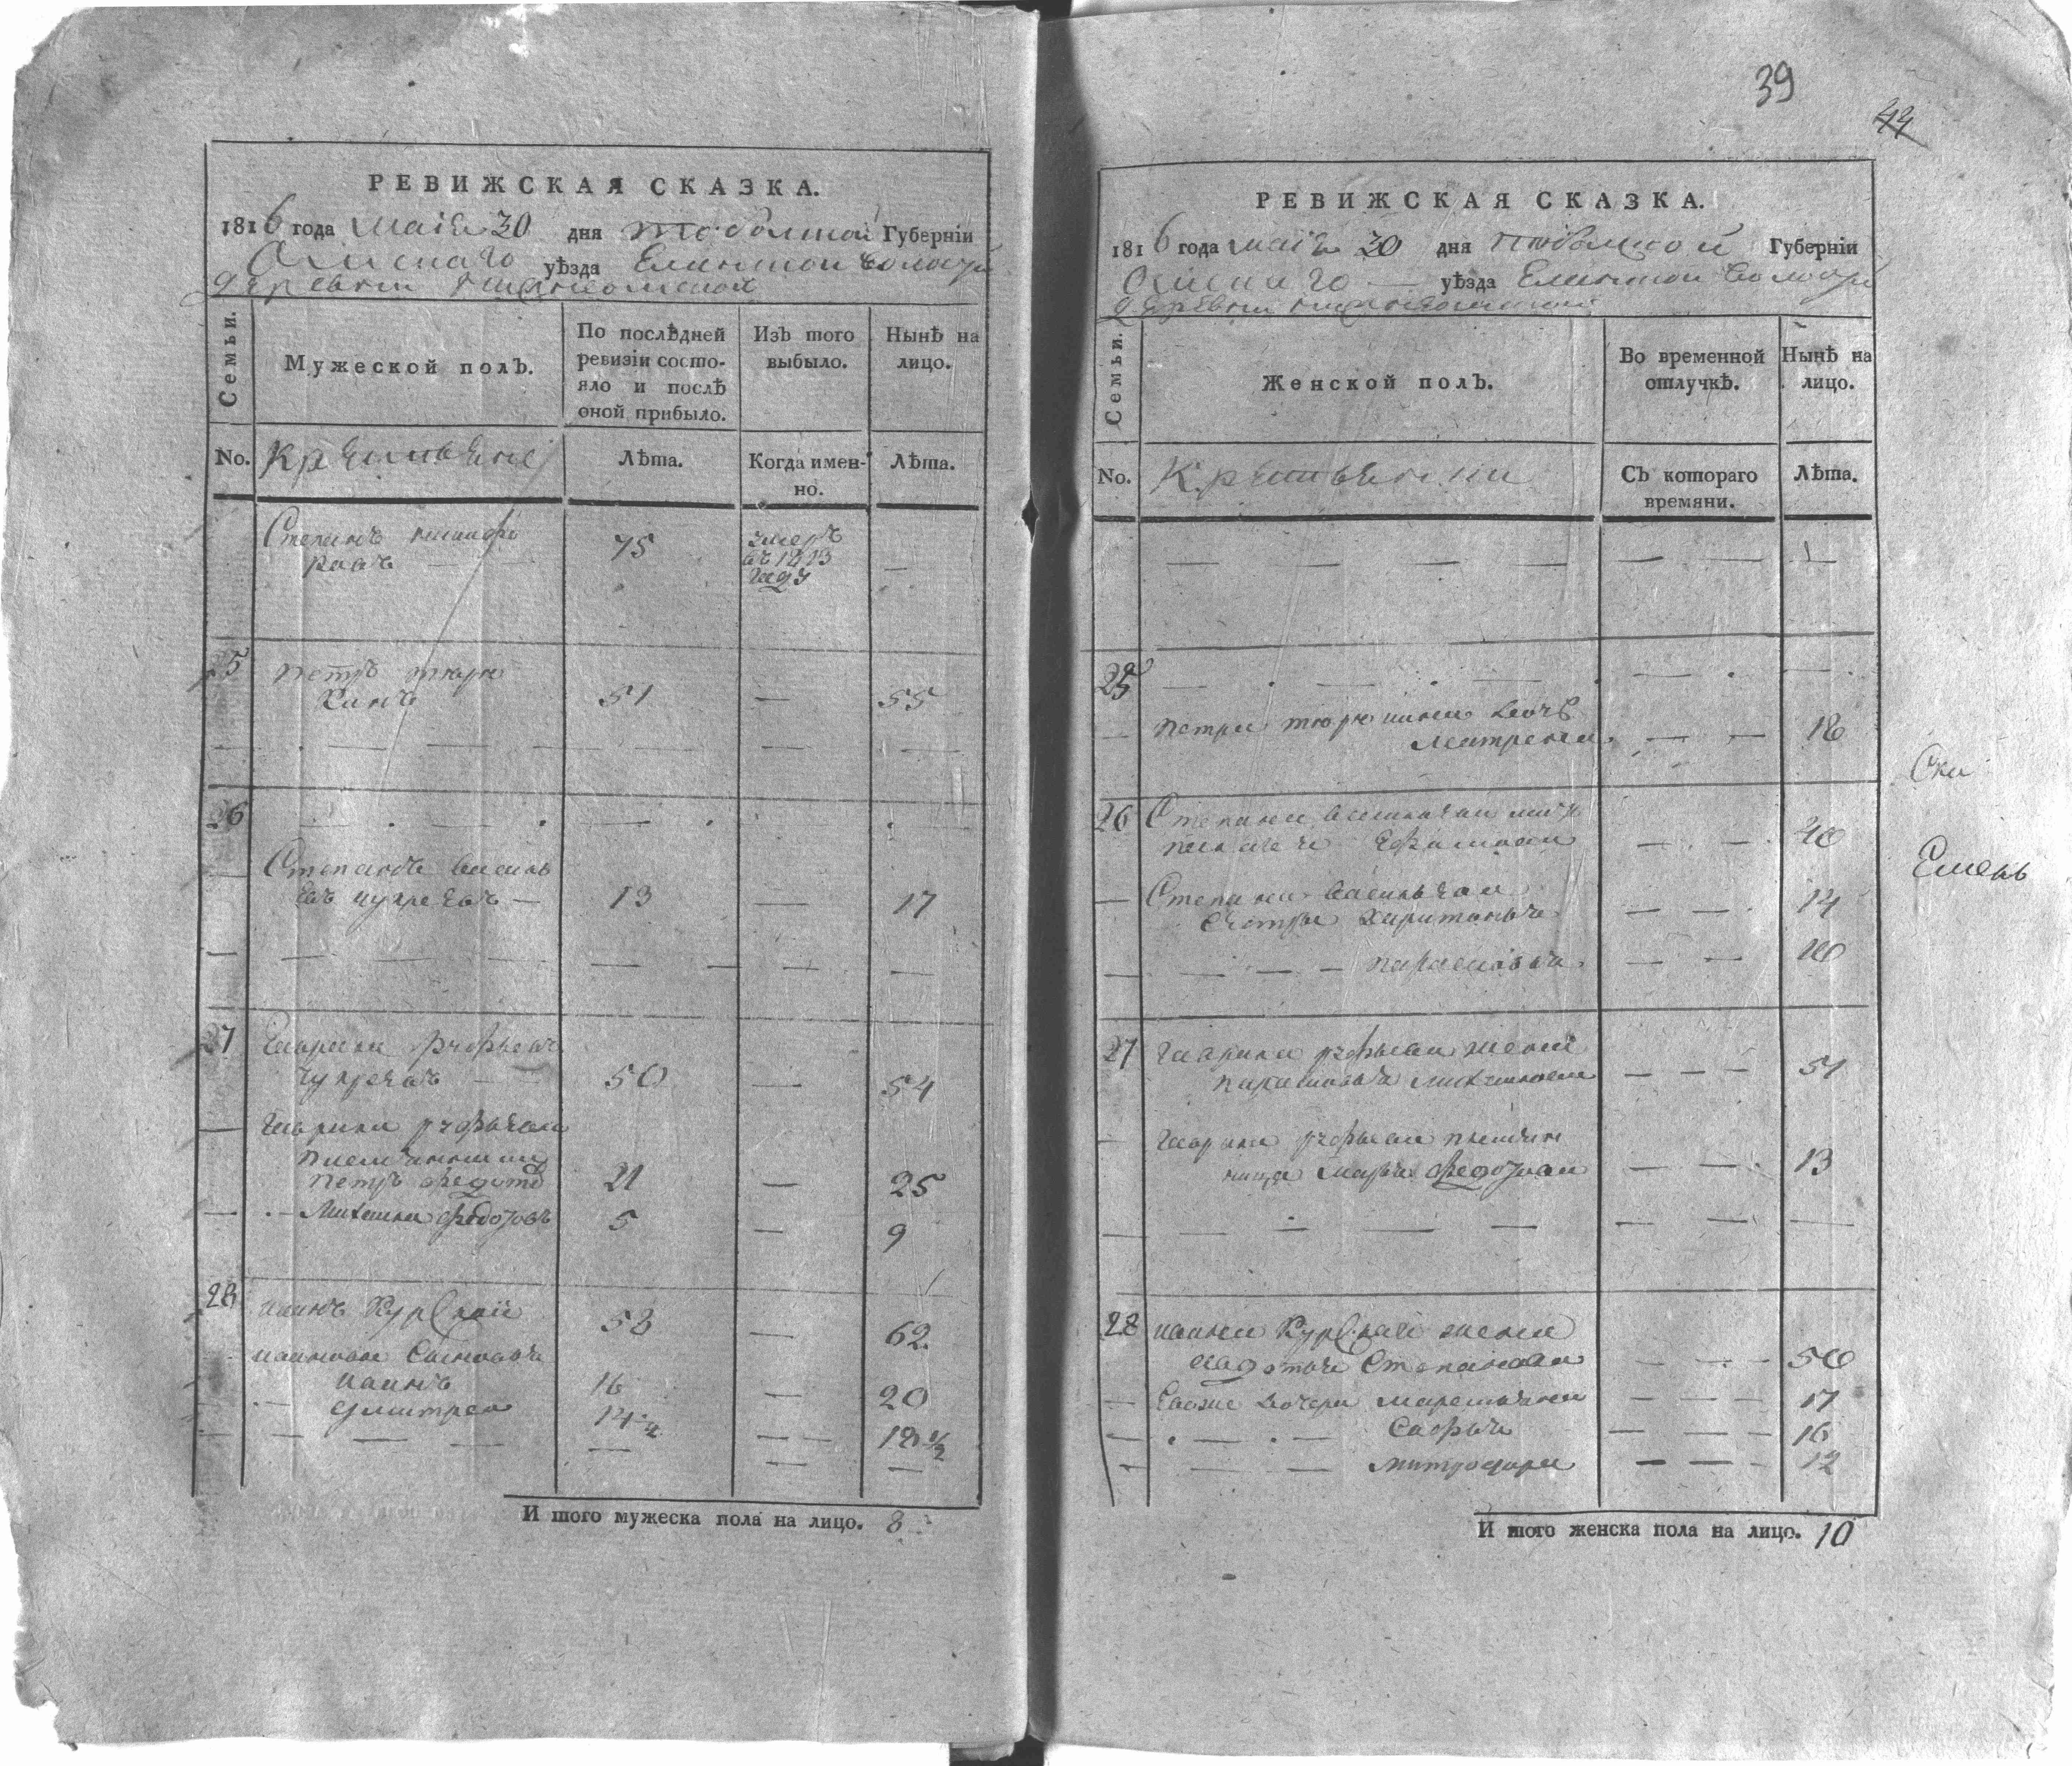 39
44
РЕВИЖСКАЯ СКАЗКА.
1816 года маiя 30 дня тобольской Губернiи
Омскаго уѣзда Еланской волости
деревни
Семьи.
Мужеской полъ.
По послѣдней ревизiи состо-
яло и послѣ
оной прибыло.
Изъ того выбыло.
Нынѣ на лицо.
No.
Крестьяне
Лѣта.
Когда имен-
но.
Лѣта.
Степанъ
75
умеръ
въ 1813
году
—
25
петръ тюрю
кинъ
51
—
55
26
Степанъ василь
евъ чупревъ —
13
—
17
27
Гаврила
чупревъ
50
—
54
Гаврила
племянники
петръ федотов
21
—
25
Михаила федотовъ
5
—
9
28
иванъ Курской
58
—
62
ивановы Сыновья
иванъ
16
—
20
дмитрей
14 1/2
—
18 1/2
И того мужеска пола на лицо. 8
РЕВИЖСКАЯ СКАЗКА.
1816 года маiя 30 дня тобольской Губернiи
Омскаго уѣзда Еланской волости
деревни
Семьи.
Женской полъ.
Во временной
отлучкѣ.
Нынѣ на
лицо.
No.
Крестьянки
Съ котораго
времяни.
Лѣта.
25
петра тюрюкина дочь
матрена
18
26
Степана васильева мать
пелагея Ефимова
40
Степана васильева
сестры харитонья
14
парасковья
10
27
Гаврила жена
парасковья михайлова
51
Гаврила племян
ница марья федотова
13
28
ивана Курскаго жена
авдотья Степанова
50
Евоже дочери маремьяна
17
Софья
16
митродора
12
И того женска пола на лицо. 10
Ска
Емель